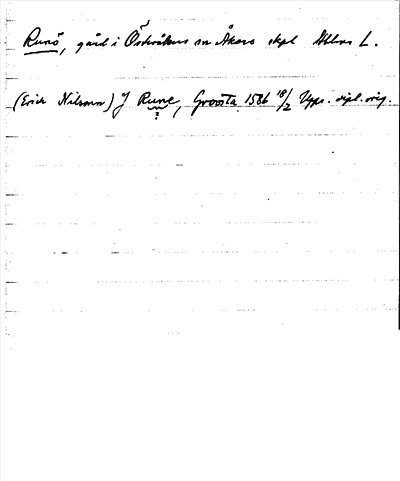 Runö, gård i Österåkers sn Åkers skpl Sthlms L.
(Erich Nilsson) J Rune, Groosta 1586 18/2 Upps. dipl. orig.
?